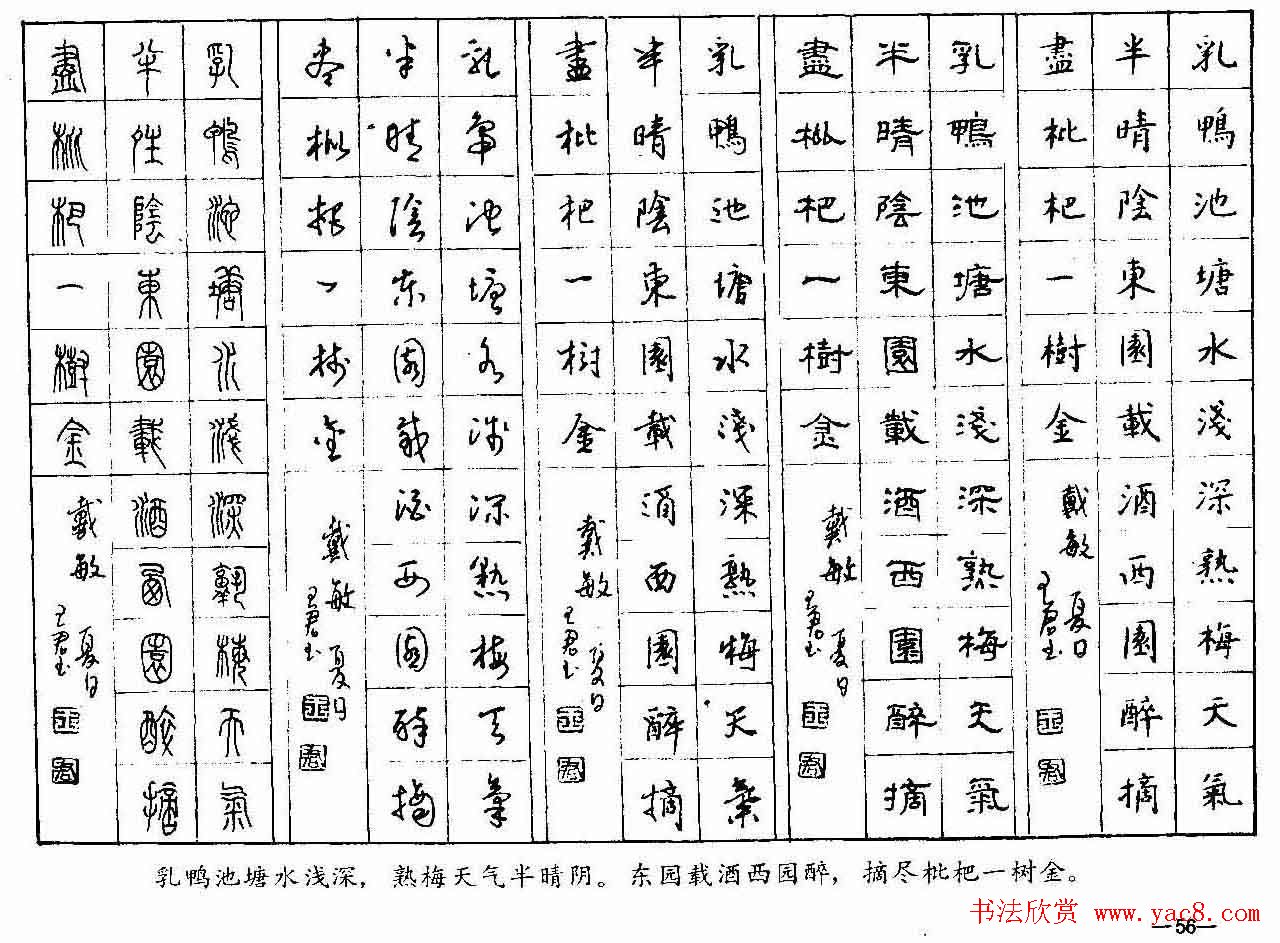 乳鴨池塘水淺深熟梅天氣
半晴陰東園載酒西園醉摘
盡枇杷一樹金
戴敏 夏日
王君書
乳鴨池塘水淺深熟梅天氣
半晴陰東園載酒西園醉摘
盡枇杷一樹金
戴敏 夏日
王君書
乳鴨池塘水淺深熟梅天氣
半晴陰東園載酒西園醉摘
盡枇杷一樹金
戴敏 夏日
王君書
乳鴨池塘水淺深熟梅天氣
半晴陰東園載酒西園醉摘
盡枇杷一樹金
戴敏 夏日
王君書
乳鴨池塘水淺深熟梅天氣
半晴陰東園載酒西園醉摘
盡枇杷一樹金
戴敏 夏日
王君書
乳鸭池塘水浅深，熟梅天气半晴阴。东园载酒西园醉，摘尽枇杷一树金。
书法欣赏 www.yac8.com
—56—